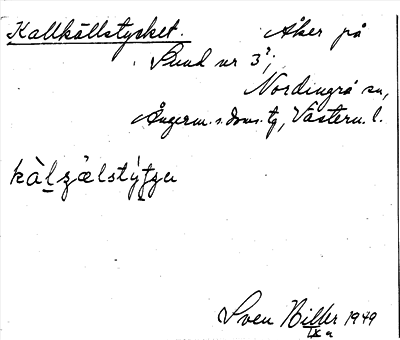 Kallkällstycket. Åker på
Sund nr 3²;
Nordingrå sn,
Ångerm. s. doms. tg, Västern. l.
kàlʒälstýtʒə
Sven Biller 1949
IX a